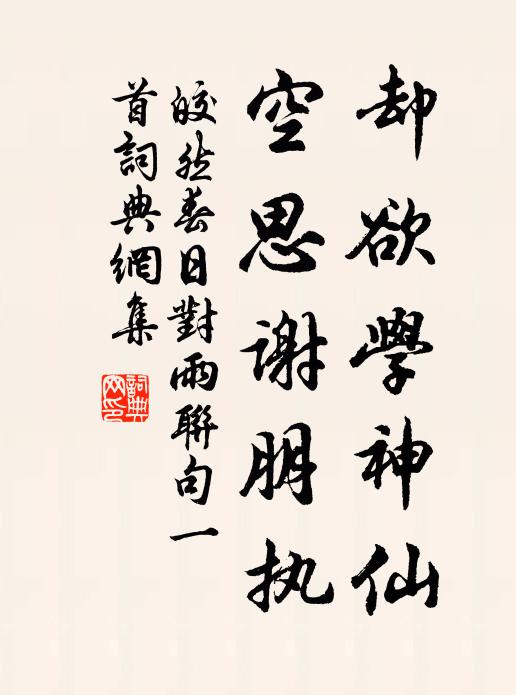 却欲學神仙
空思謝朋执
皎然春日對雨聯句一
首詞典網集
詞典
网印